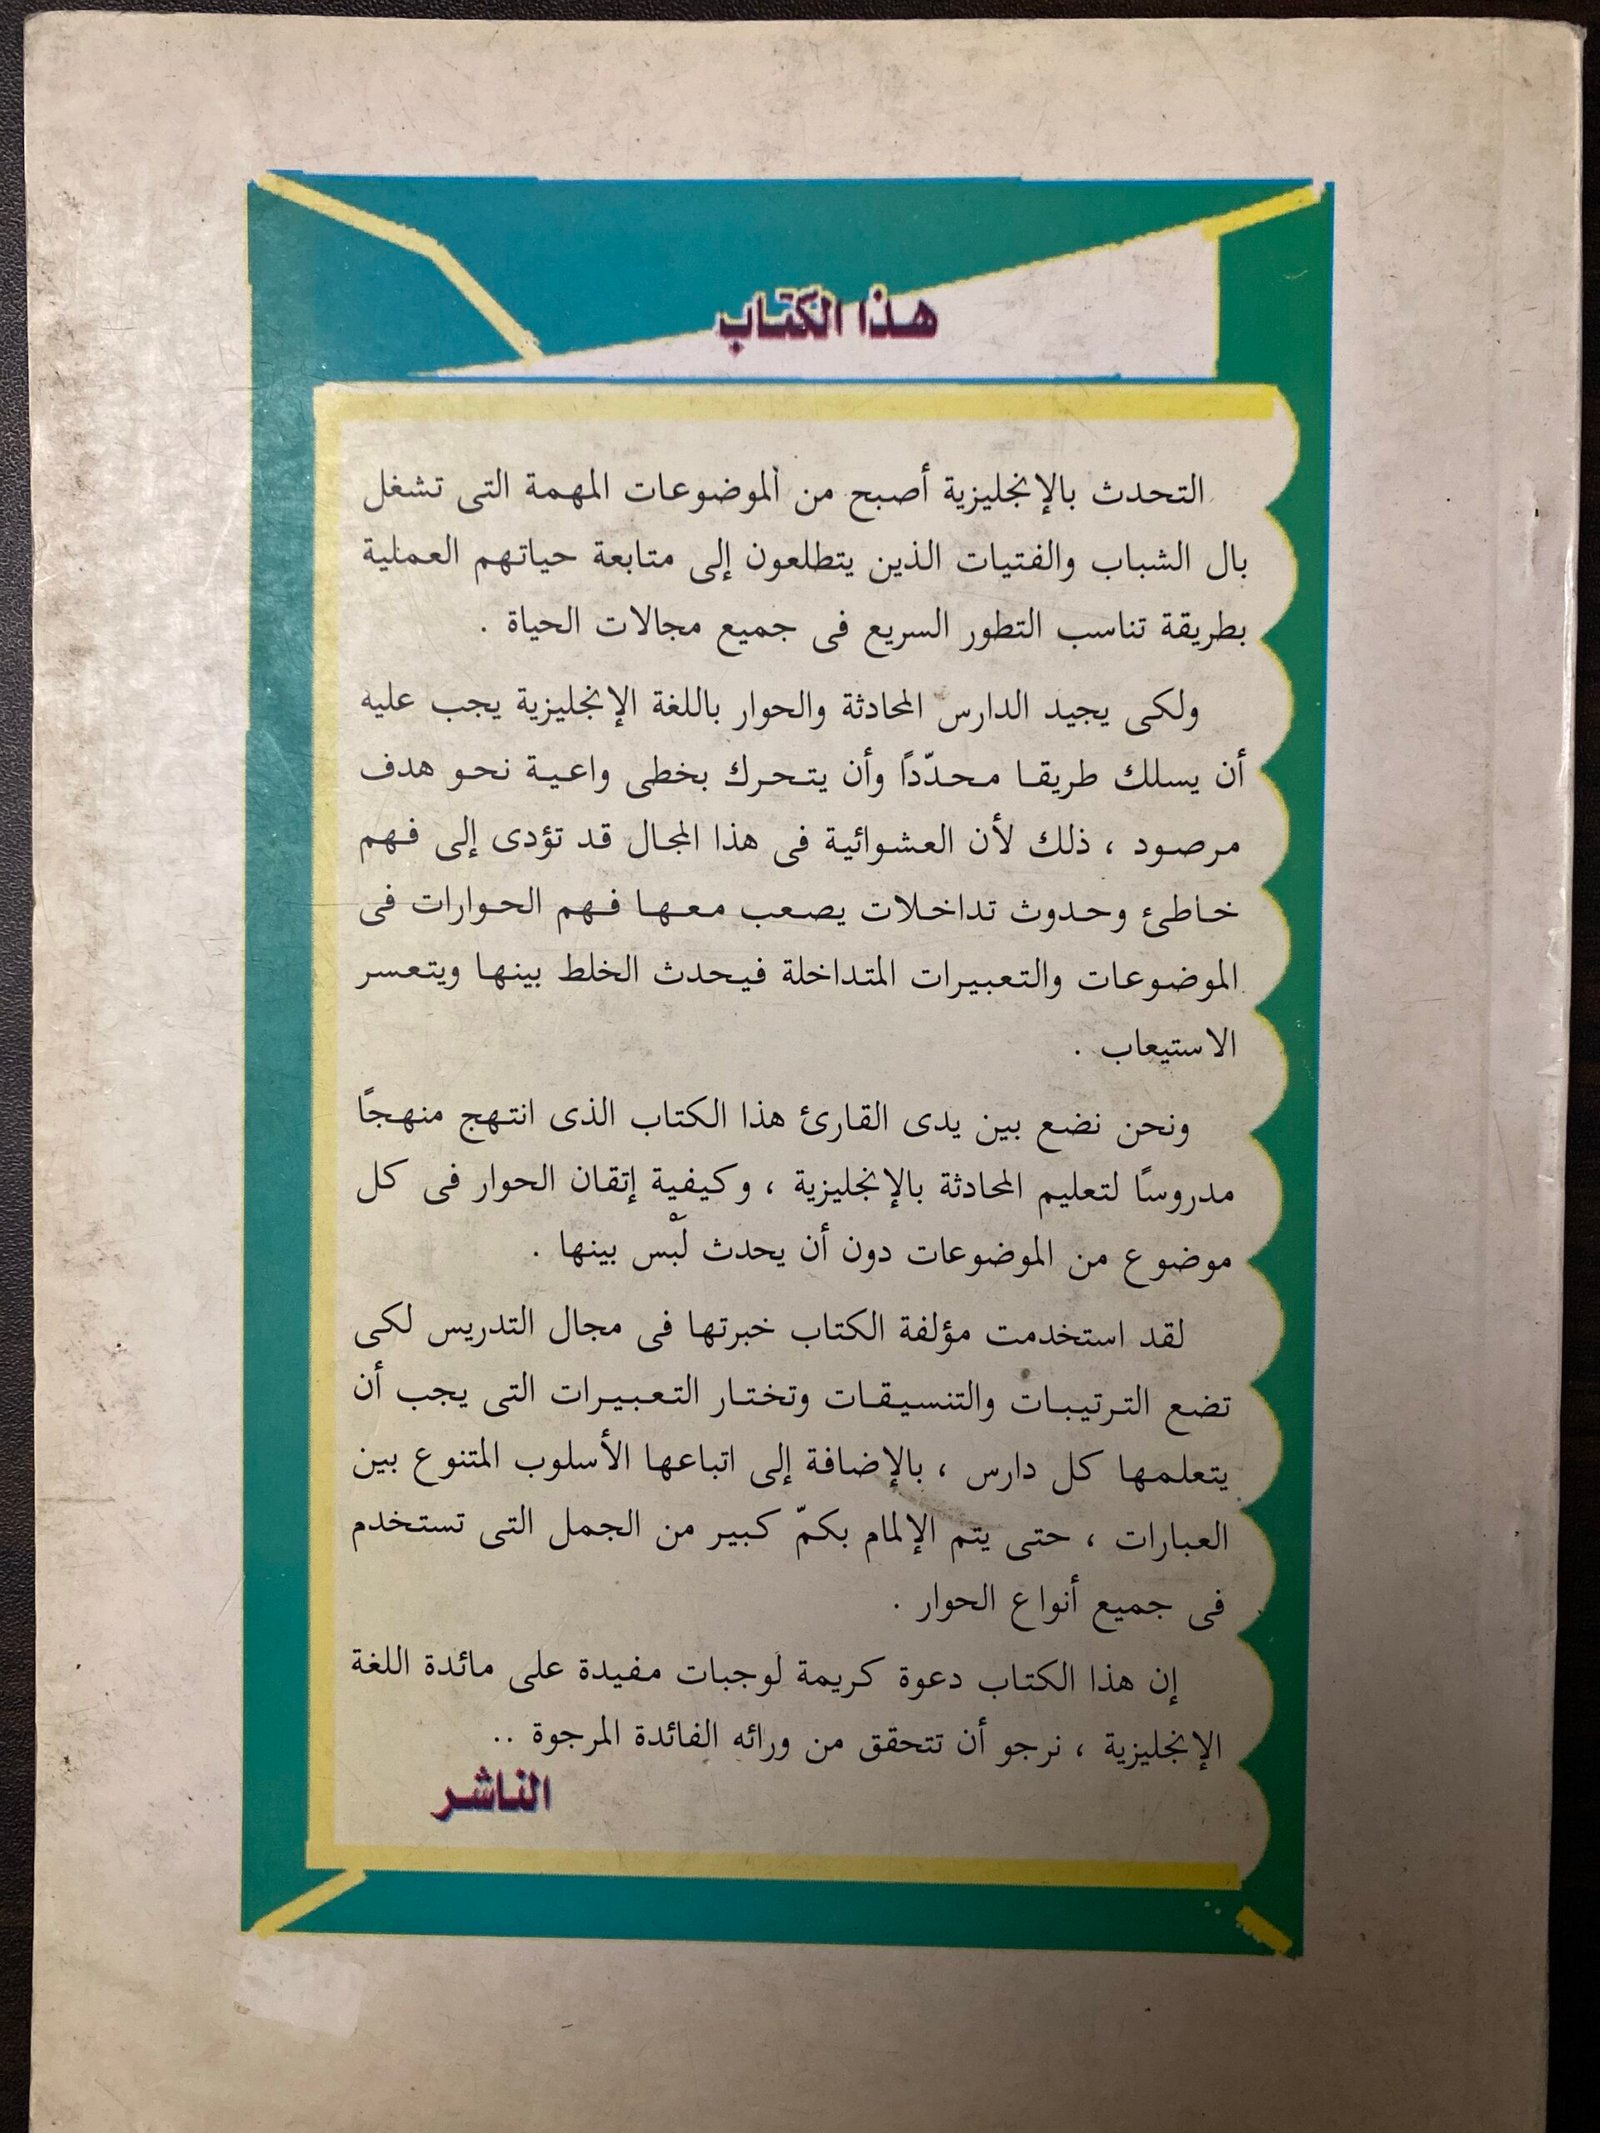 هذا الكتاب
التحدث بالإنجليزية أصبح من الموضوعات المهمة التى تشغل
بال الشباب والفتيات الذين يتطلعون إلى متابعة حياتهم العملية
بطريقة تناسب التطور السريع فى جميع مجالات الحياة .
ولكى يجيد الدارس المحادثة والحوار باللغة الإنجليزية يجب عليه
أن يسلك طريقا محدّدًا وأن يتحرك بخطى واعية نحو هدف
مرصود ، ذلك لأن العشوائية فى هذا المجال قد تؤدى إلى فهم
خاطئ وحدوث تداخلات يصعب معها فهم الحوارات فى
الموضوعات والتعبيرات المتداخلة فيحدث الخلط بينها ويتعسر
الاستيعاب .
ونحن نضع بين يدى القارئ هذا الكتاب الذى انتهج منهجًا
مدروسًا لتعليم المحادثة بالإنجليزية ، وكيفية إتقان الحوار فى كل
موضوع من الموضوعات دون أن يحدث لَبْس بينها .
لقد استخدمت مؤلفة الكتاب خبرتها فى مجال التدريس لكى
تضع الترتيبات والتنسيقات وتختار التعبيرات التى يجب أن
يتعلمها كل دارس ، بالإضافة إلى اتباعها الأسلوب المتنوع بين
العبارات ، حتى يتم الإلمام بكمّ كبير من الجمل التى تستخدم
فى جميع أنواع الحوار .
إن هذا الكتاب دعوة كريمة لوجبات مفيدة على مائدة اللغة
الإنجليزية ، نرجو أن تتحقق من ورائه الفائدة المرجوة ..
الناشر